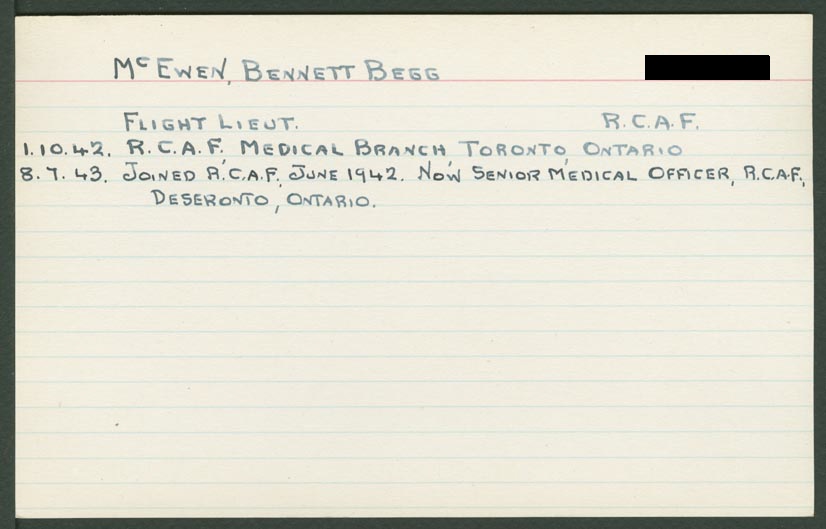 McEwen, Bennett Begg
Flight Lieut. R.C.A.F.
1.10.42. R.C.A.F. Medical Branch, Toronto, Ontario
8.7.43. Joined R.C.A.F. June 1942. Now Senior Medical Officer, R.C.A.F.,
Deseronto, Ontario.